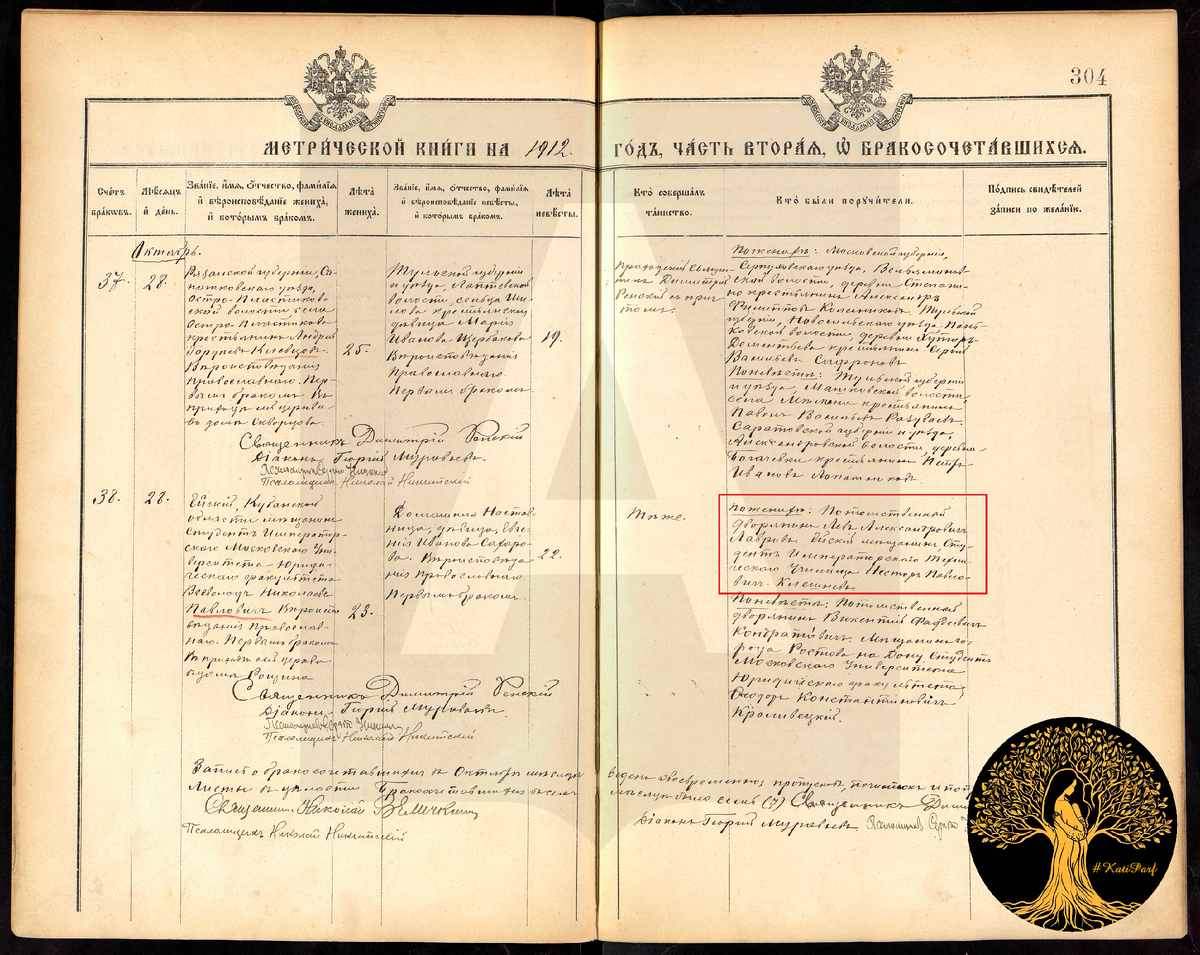 304
МЕТРИ́ЧЕСКОЙ КНИ́ГИ НА 1912. ГО́ДЪ, ЧА́СТЬ ВТОРА́Я, Ѿ БРАКОСОЧЕТА́ВШИХСЯ.
Сче́тъ бра́ковъ.
Мѣ́сяцъ и҆ де́нь.
Зва́нїе, и҆́мя, о҆́тчество, фами́лїя и҆ вѣроисповѣ́данїе жениха̀, и҆ кото́рымъ бра́комъ.
Лѣ́та жениха̀.
Зва́нїе, и҆́мя, о҆́тчество, фами́лїя и҆ вѣроисповѣ́данїе невѣ́сты, и҆ кото́рымъ бра́комъ.
Лѣ́та невѣ́сты.
Кто̀ соверша́лъ та́инство.
Кто̀ бы́ли поручи́тели.
По́дпись свидѣ́телей за́писи по жела́нїю.
Октябрь.
37.
28.
Рязанской губерніи, Са-
пожковскаго уѣзда,
Остро-Пластиков-
ской волости, села
Остро-Пластикова
крестьянинъ Андрей
Клевцовъ.
Вѣроисповѣданія
православнаго. Пер-
вымъ бракомъ. Въ
приходѣ сей церкви
въ домѣ Скворцова.
25.
Тульской губерніи
и уѣзда, Лаптевской
волости, сельца
крестьянская
дѣвица Марія
Иванова Щербакова
Вѣроисповѣданія
Православнаго.
Первымъ бракомъ.
19.
Приходскій Священ-
никъ Димитрій
Ренскій съ прич-
томъ.
По женихѣ: Московской губерніи,
Серпуховскаго уѣзда, Вельяминов-
ской волости, деревни
крестьянинъ Александръ
Филипповъ Тульской
губерніи, Новосильскаго уѣзда,
волости, деревни Хуторъ-
крестьянинъ Сергій
Васильевъ Сафроновъ.
По невѣстѣ: Тульской губерніи
и уѣзда, волости,
села крестьянинъ
Павелъ Васильевъ Разуваевъ.
Саратовской губерніи и уѣзда,
Александровской волости, деревни
Богачевки крестьянинъ Петръ
Ивановъ Лопатниковъ.
Священникъ Димитрій Ренскій
Діаконъ Георгій Муравьевъ.
Псаломщикъ Сергій
Псаломщикъ Николай Никитскій
38.
28.
Ейскій, Кубанской
области мѣщанинъ
Студентъ Император-
скаго Московскаго Уни-
верситета Юриди-
ческаго факультета
Всеволодъ Николаевъ
Павловичъ Вѣроиспо-
вѣданія Православ-
наго. Первымъ бракомъ
Въ приходѣ сей церкви
въ домѣ Рощина
23.
Домашняя Настав-
ница, дѣвица, Евге-
нія Иванова Сахаро-
ва. Вѣроисповѣда-
нія Православнаго.
Первымъ бракомъ.
22.
Тотъ же.
По женихѣ: Потомственный
дворянинъ Левъ Александровичъ
Лавровъ. Ейскій мѣщанинъ Сту-
дентъ Императорскаго Техни-
ческаго Училища Несторъ Павло-
вичъ Клешневъ
По невѣстѣ: Потомственный
дворянинъ Викентій Фадѣевичъ
Кондратовичъ. Мѣщанинъ го-
рода Ростова на Дону Студентъ
Московскаго Университета
Юридическаго факультета
Ѳеодоръ Константиновичъ
Кроливецкій.
Священникъ Димитрій Ренскій
Діаконъ Георгій Муравьевъ
Псаломщикъ Сергій
Псаломщикъ Николай Никитскій
Запись о бракосочетавшихся въ Октябрѣ мѣсяцѣ ведена своевременно; пропусковъ, почистокъ и
Листы въ цѣлости. Бракосочетавшихся въ семъ мѣсяцѣ было семь (7) Священникъ
Священникъ Николай
Діаконъ Георгій Муравьевъ Псаломщикъ Сергій
Псаломщикъ Николай Никитскій
#KatiParf